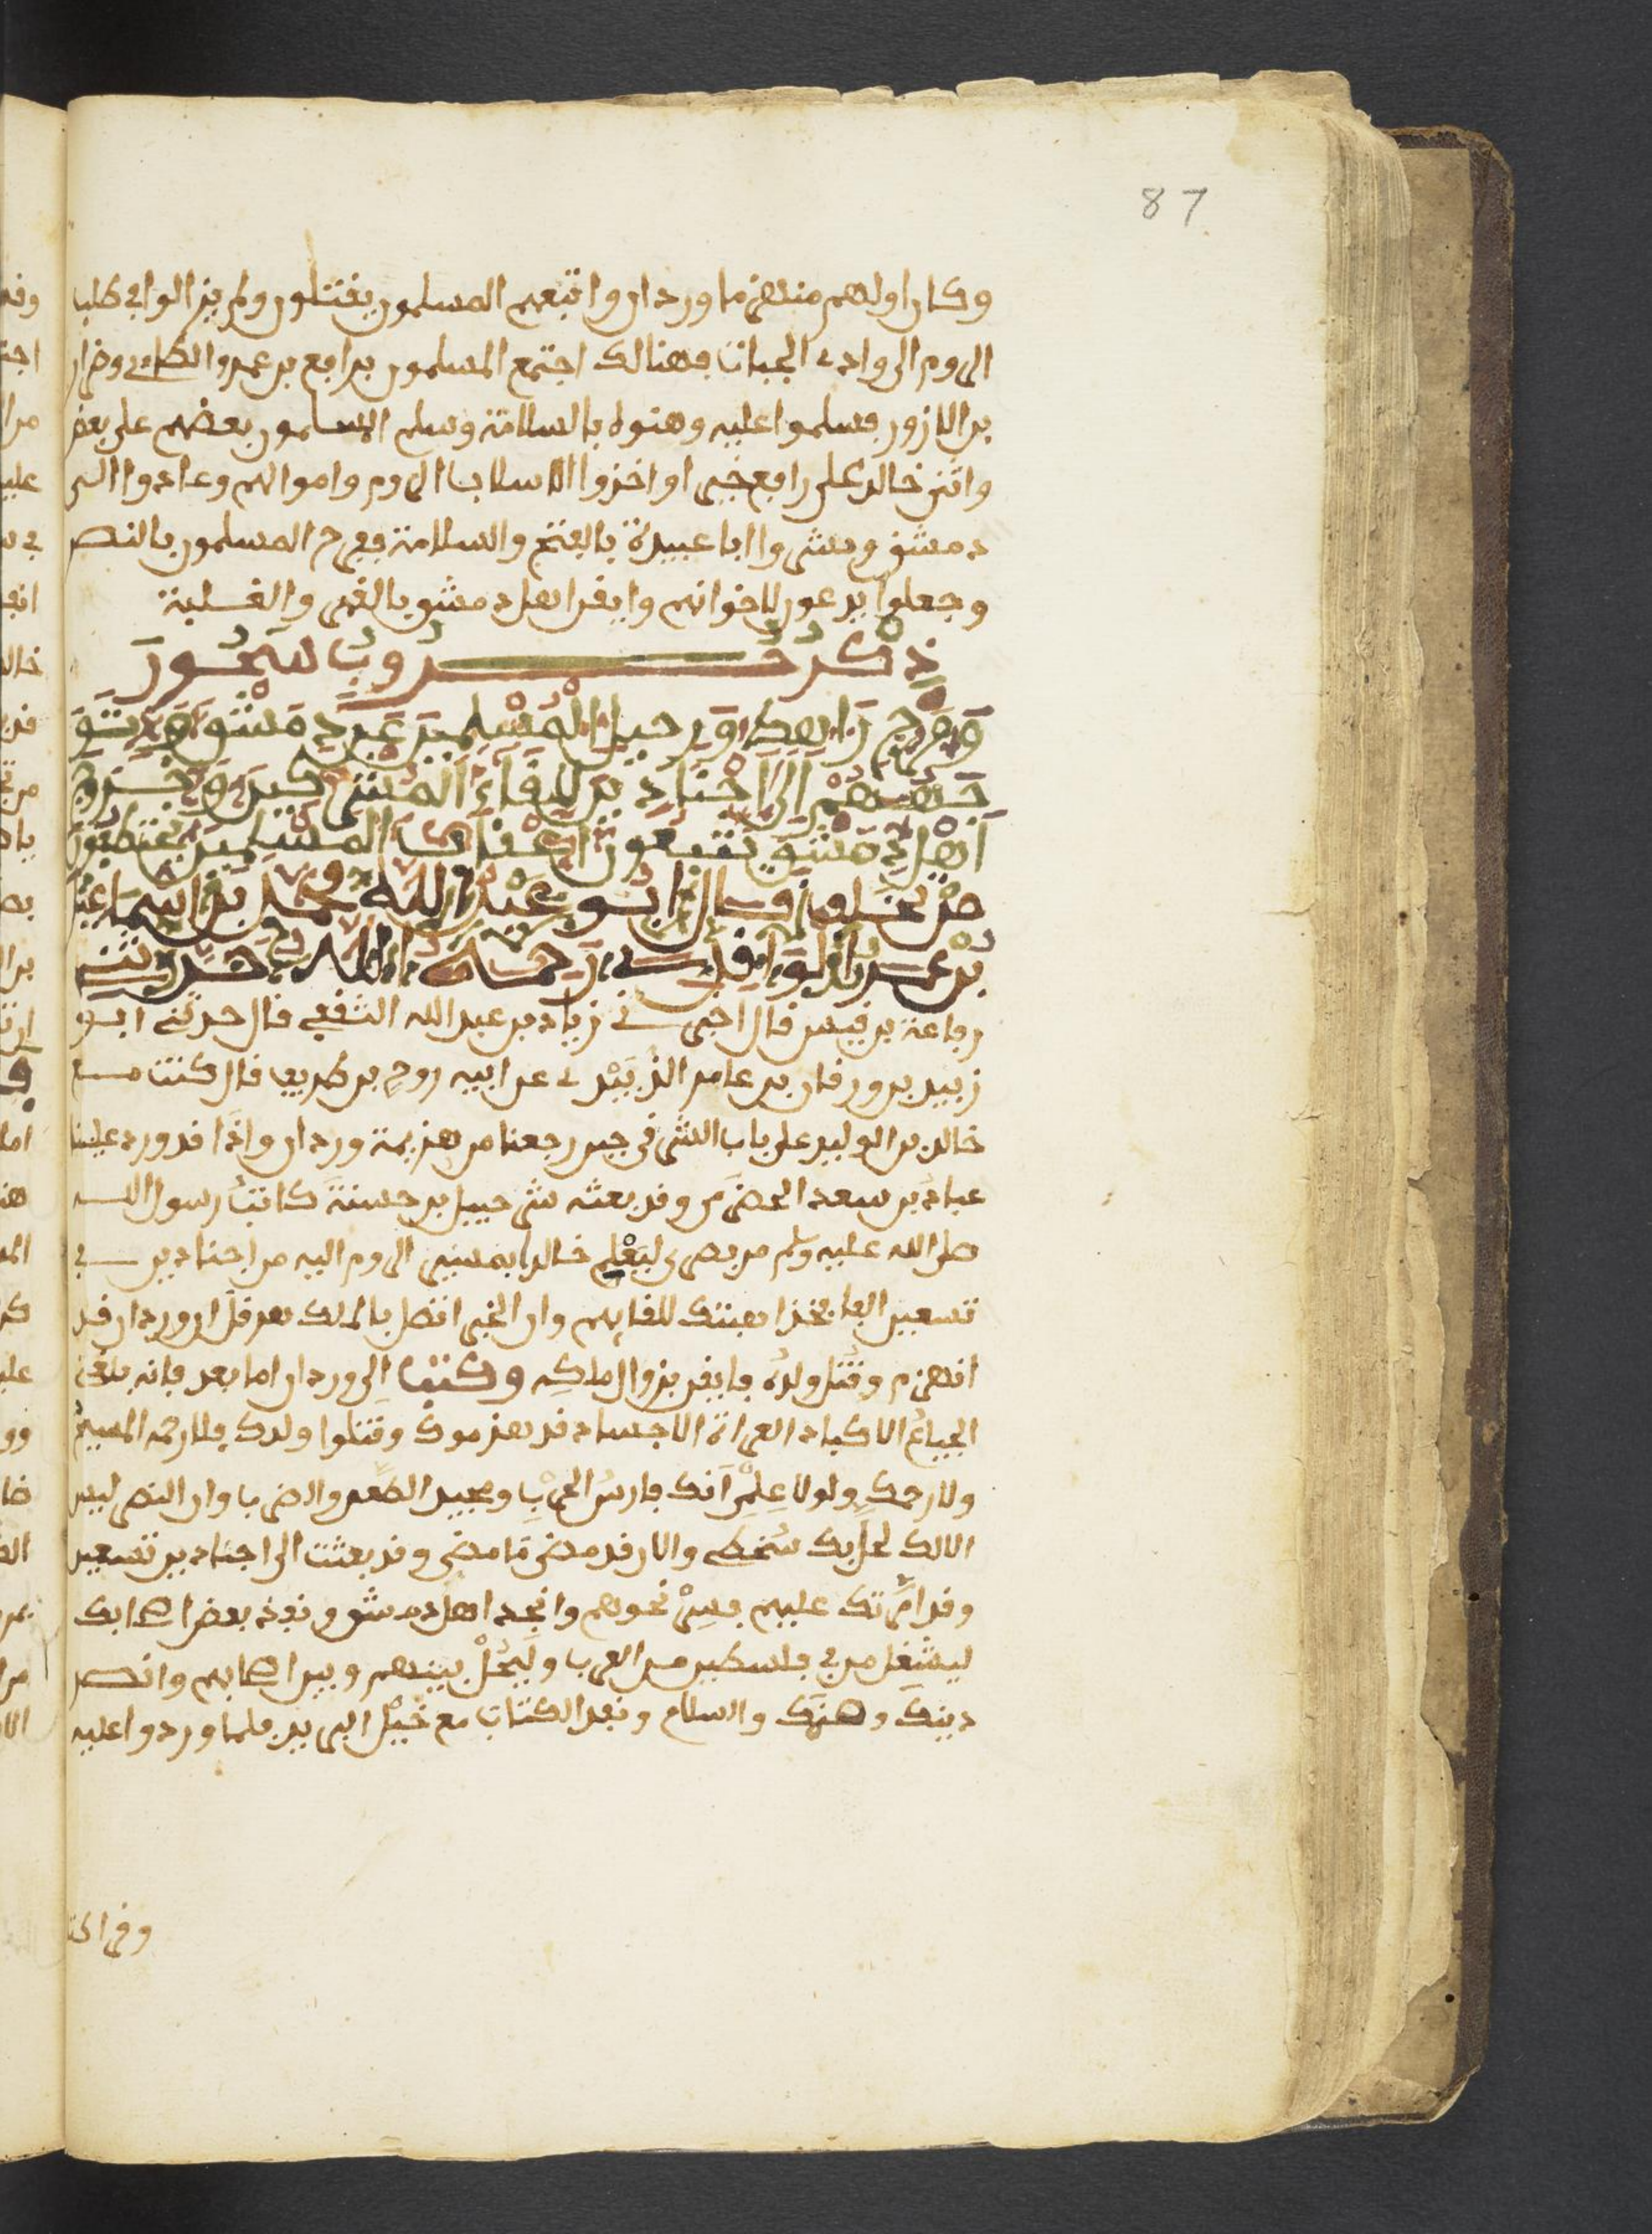 87
وكان اولهم منهزما وردان واتبعهم المسلمون يقتلون ولم يزالوا في طلب
الروم الى وادي الجبات فهنالك اجتمع المسلمون برافع بن عمرو الطاءي وضرار
بن الازور فسلموا عليه وهنوه بالسلامة وسلم المسلمون بعضهم على بعض
واثنى خالد على رافع خيرا واخذوا الاسلاب الروم واموالهم وعادوا الى
دمشق وبشروا ابا عبيدة بالفتح والسلامة ففرح المسلمون بالنصر
وجعلوا يدعون لاخوانهم وايقن اهل دمشق بالقهر والغلبة
ذكر حروب سحور
ورحيل المسلمين عن دمشق
الى اجنادين للقاء المشركين وخروج
اهل دمشق يتبعون اعقاب المسلمين يقتطعون
من تخلف قال ابو عبد الله محمد بن اسماعيل
بن عمر الواقدي رحمه الله حدثني
رفاعة بن قيس قال اخبرني زياد بن عبد الله الثقفي قال حدثني ابو
زبيد بن ورقان بن عامر الزبيدي عن ابيه روح بن طريف قال كنت مع
خالد بن الوليد على باب الشرقي حين رجعنا من هزيمة وردان واذا قد ورد علينا
عباد بن سعد الحضرمي وقد بعثه شرحبيل بن حسنة كاتب رسول الله
صلى الله عليه وسلم من بصرى ليعلم خالدا بمسير الروم اليه من اجنادين في
تسعين الفا فخذ اهبتك للقايهم وان الخبر اتصل بالملك هرقل ان وردان قد
انهزم وقتل ولده فايقن بزوال ملكه وكتب الى وردان اما بعد فانه بلغني
الجياع الاكباد العراة الاجساد قد هزموك وقتلوا ولدك فلا رحمه المسيح
ولا رحمك ولولا علمي انك فارس الحرب ومجيد الطعن والضرب وان النصر ليس
لحل بك سخطي والان قد مضى ما مضى وقد بعثت الى اجنادين تسعين
وقد امرتك عليهم فسر نحوهم وانجد اهل دمشق ونفذ بعض اصحابك
ليشغل من في فلسطين من العرب وليحل بينهم وبين اصحابهم وانصر
دينك والسلام ونفذ الكتاب مع خيل البريد فلما وردوا عليه